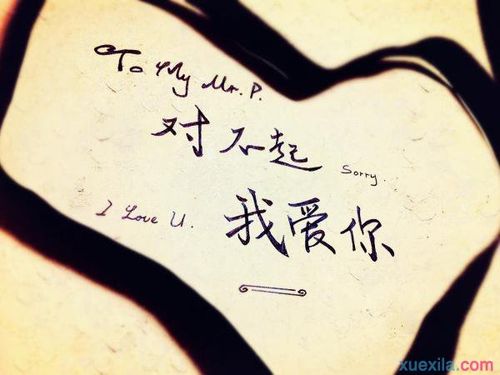 To My Mr. P.
对不起 Sorry.
I Love U. 我爱你
xuexila.com